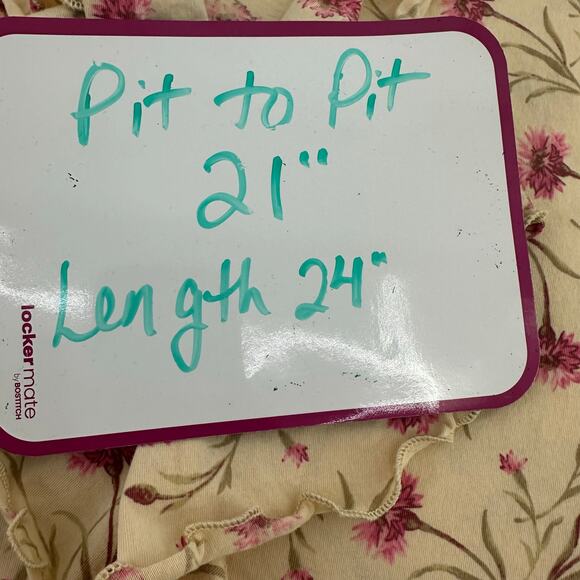 Pit to Pit
21"
Length 24"
lockermate
by BOSTITCH